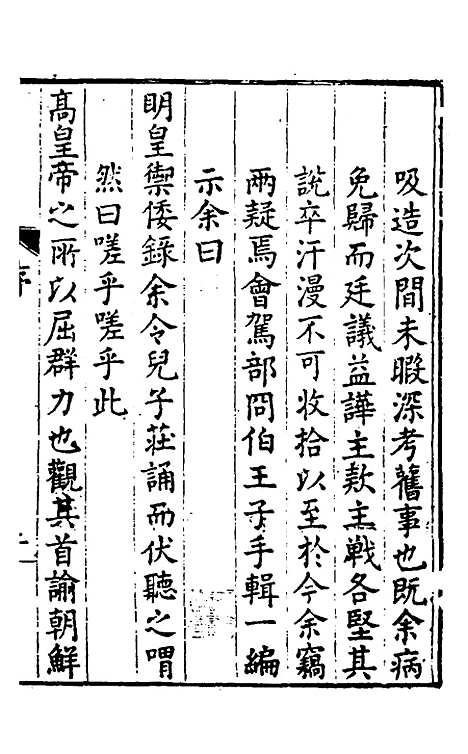 吸造次間未暇深考舊事也既余病
免歸而廷議益譁主款主戰各堅其
說卒汗漫不可收拾以至於今余竊
兩疑焉會駕部冏伯王子手輯一編
示余曰
明皇禦倭錄余令兒子莊誦而伏聽之喟
然曰嗟乎嗟乎此
高皇帝之所以屈群力也觀其首諭朝鮮
序